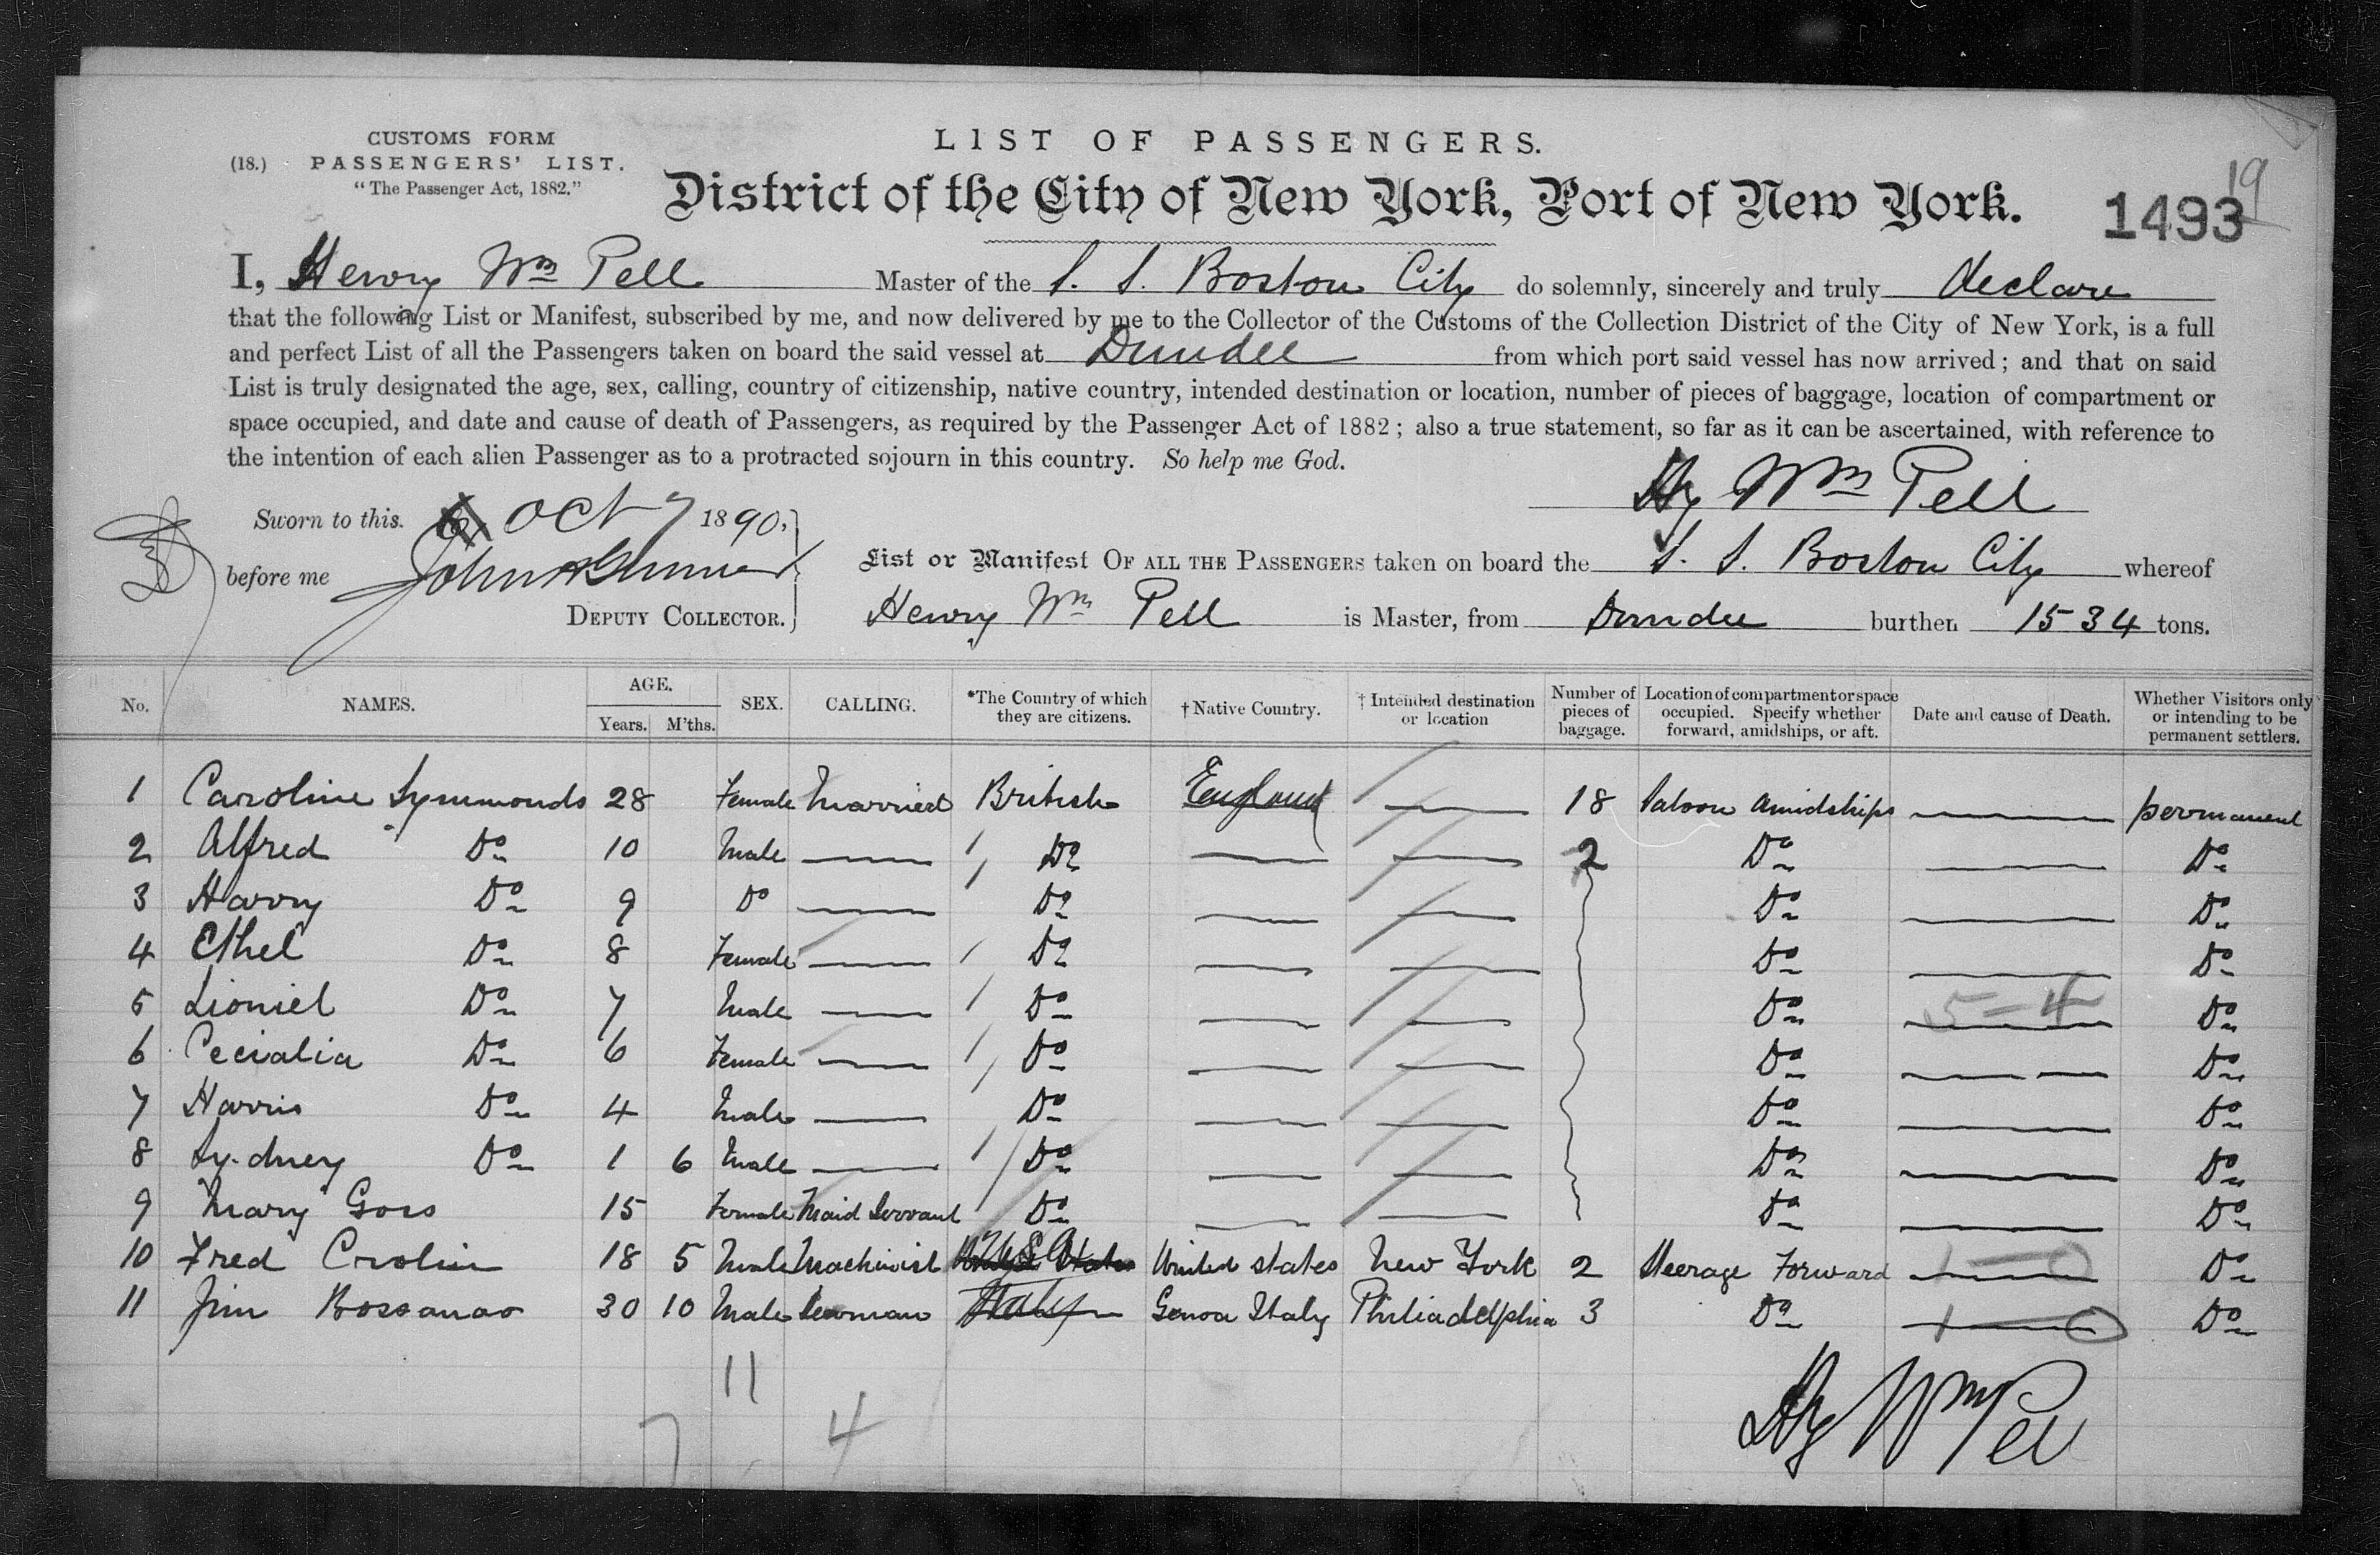 CUSTOMS FORM
(18.) PASSENGERS' LIST.
"The Passenger Act, 1882."
LIST OF PASSENGERS.
District of the City of New York, Port of New York.
19
1493
I, Henry Wm Pell Master of the S. S. Boston City do solemnly, sincerely and truly declare
that the following List or Manifest, subscribed by me, and now delivered by me to the Collector of the Customs of the Collection District of the City of New York, is a full
and perfect List of all the Passengers taken on board the said vessel at Dundee from which port said vessel has now arrived; and that on said
List is truly designated the age, sex, calling, country of citizenship, native country, intended destination or location, number of pieces of baggage, location of compartment or
space occupied, and date and cause of death of Passengers, as required by the Passenger Act of 1882; also a true statement, so far as it can be ascertained, with reference to
the intention of each alien Passenger as to a protracted sojourn in this country. So help me God.
Hy Wm Pell
Sworn to this. Oct 7 1890,
before me John
DEPUTY COLLECTOR.
List or Manifest OF ALL THE PASSENGERS taken on board the S. S. Boston City whereof
Henry Wm Pell is Master, from Dundee burthen 1534 tons.
No. NAMES. AGE. Years. M'ths. SEX. CALLING. *The Country of which they are citizens. †Native Country. †Intended destination or location Number of pieces of baggage. Location of compartment or space occupied. Specify whether forward, amidships, or aft. Date and cause of Death. Whether Visitors only or intending to be permanent settlers.
1 Caroline Symmonds 28 Female Married British England — 18 Saloon Amidships — permanent
2 Alfred Do 10 Male — Do — — 2 Do — Do
3 Harry Do 9 Do — Do — — Do — Do
4 Ethel Do 8 Female — Do — — Do — Do
5 Lioniel Do 7 Male — Do — — Do — 5=4 Do
6 Cecialia Do 6 Female — Do — — Do — Do
7 Harris Do 4 Male — Do — — Do — Do
8 Sydney Do 1 6 Male — Do — — Do — Do
9 Mary Goss 15 Female Maid Servant Do — — Do — Do
10 Fred Crolin 18 5 Male Machinist United States New York 2 Steerage Forward 1—0 Do
11 Jim Bossanao 30 10 Male Seaman Italy Genoa Italy Philiadelphia 3 Do 1—0 Do
11
7 4
Hy Wm Pell